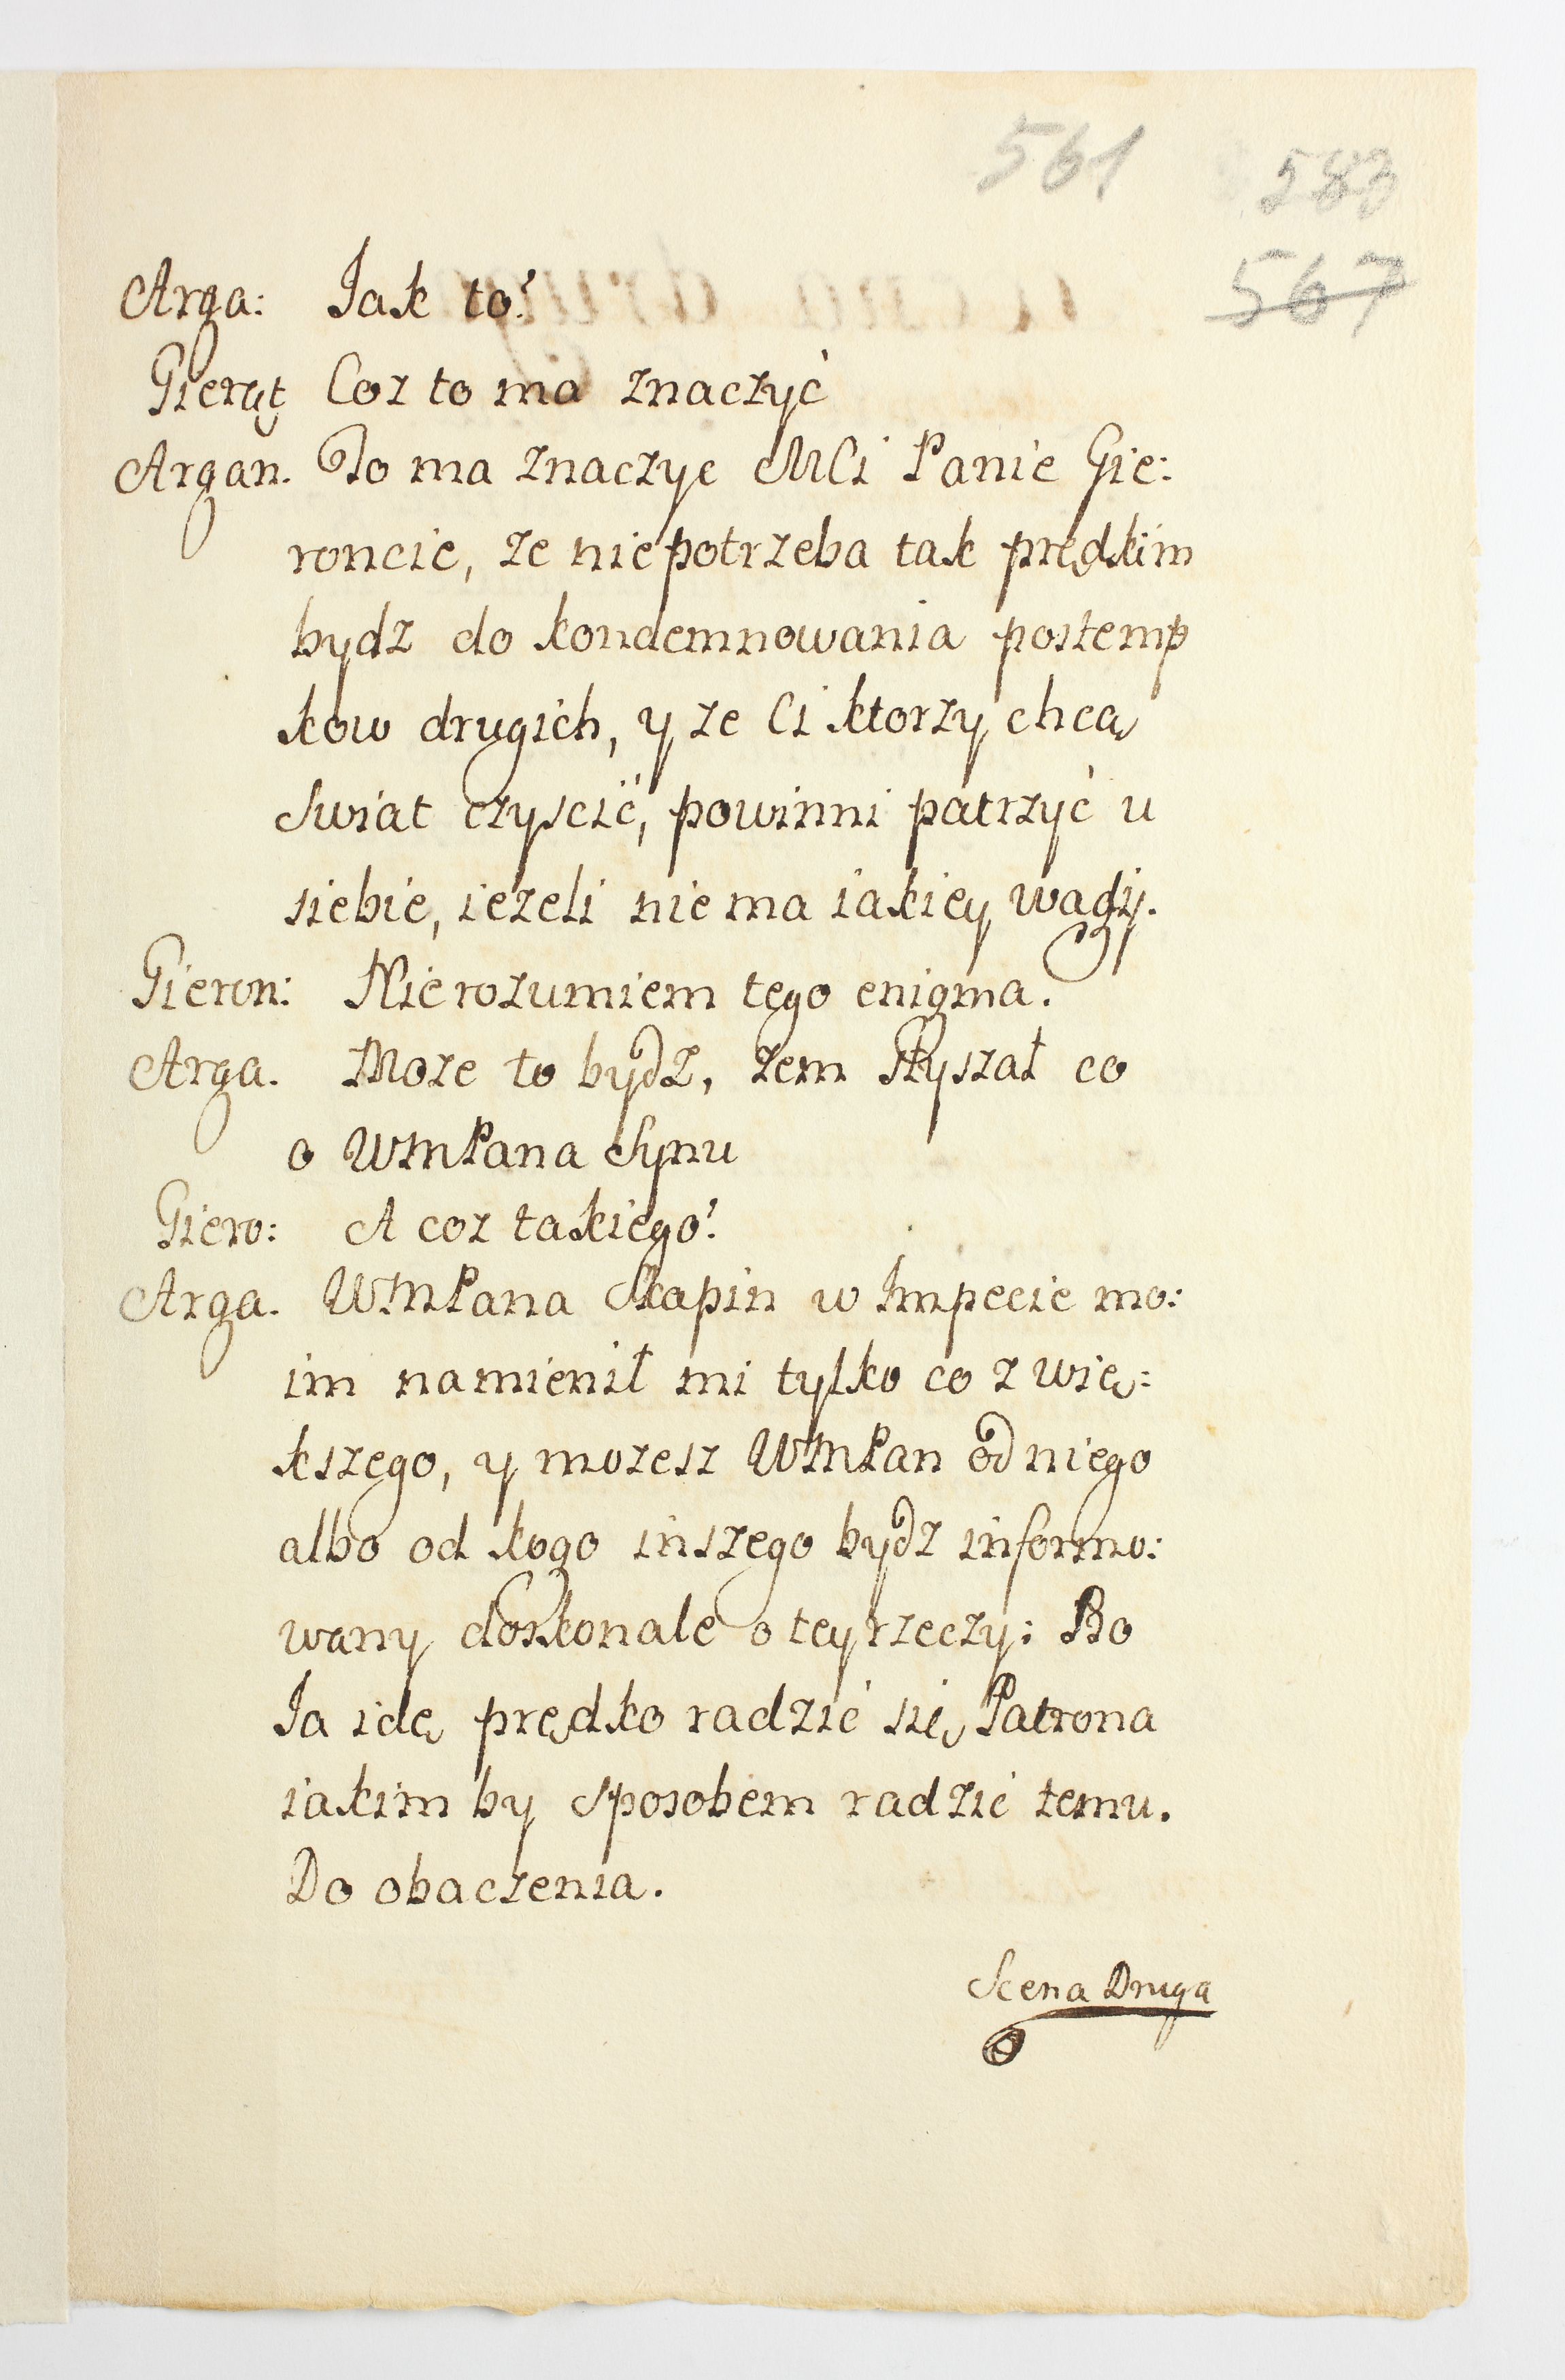 561
583
567
Arga: Iak to?
Gierąt Coz to ma znaczyć
Argan. To ma znaczyc MCi Panie Gie:
roncie, ze niepotrzeba tak prędkim
bydz do kondemnowania postemp
kow drugich, y ze Ci ktorzy chcą
Swiat czyscić, powinni patrzyć u
siebie, iezeli nie ma iakiey wady.
Gieron: Nierozumiem tego enigma.
Arga. Moze to bydz, zem słyszał co
o WMPana Synu
Giero: A coz takiego?
Arga. WMPana Skapin w Impecie mo:
im namienił mi tylko co z wię:
kszego, y mozesz WMPan od niego
albo od kogo inszego bydz informo:
wany doskonale o tey rzeczy: Bo
Ia idę prędko radzić się Patrona
iakim by Sposobem radzić temu.
Do obaczenia.
Scena Druga